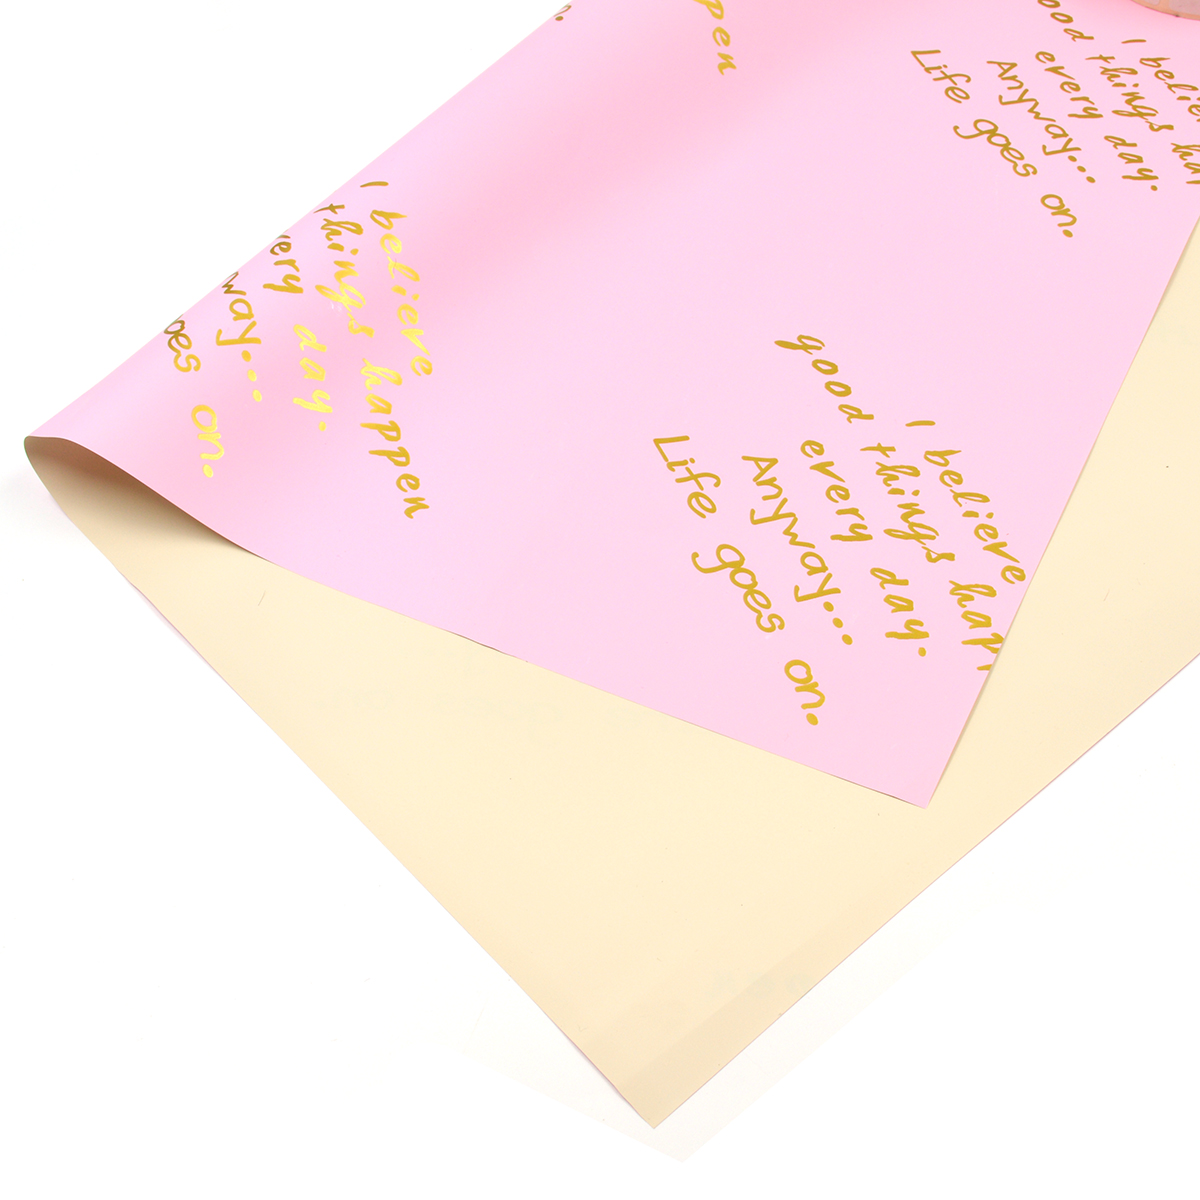 pen
I believe
good things hap
every day.
Anyway...
Life goes on.
I believe
things happen
ery day.
way...
oes on.
I believe
good things hap
every day.
Anyway...
Life goes on.